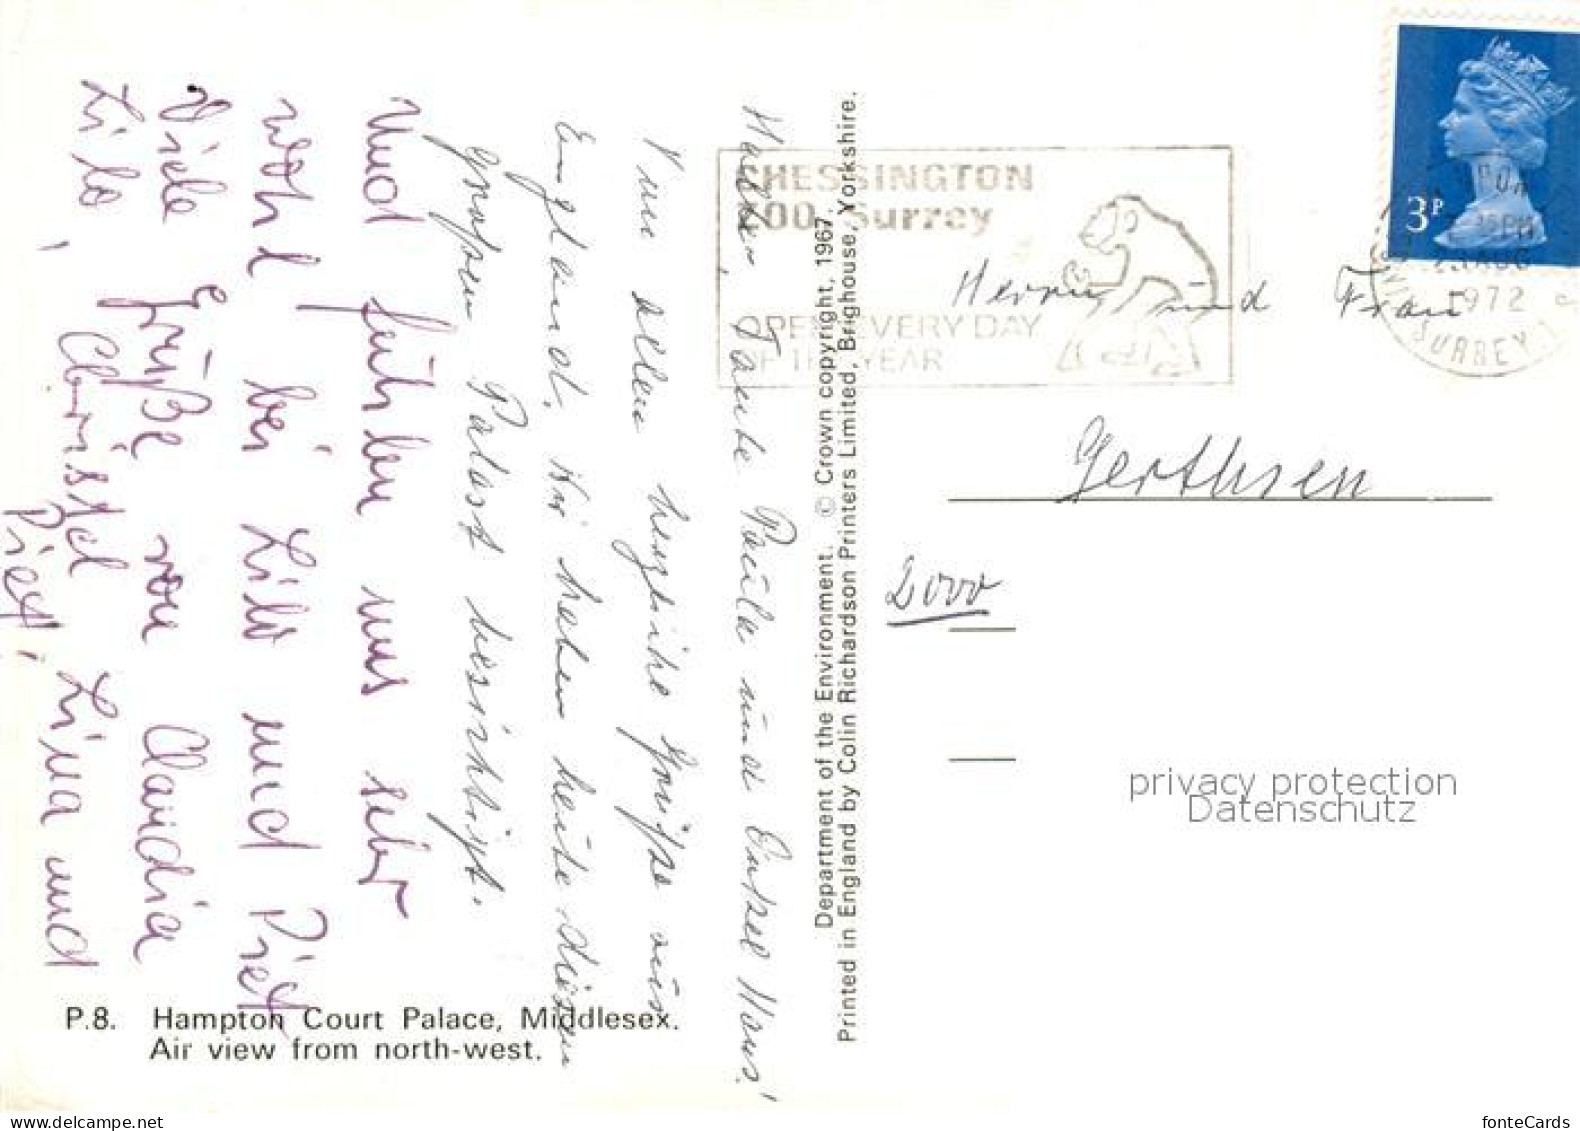 Hallo, Tante Paula und Onkel Hans!
Von allen herzliche Grüße aus
England. Wir haben heute diesen
großen Palast besichtigt.
Und fühlen uns sehr
wohl bei Lilo und Piet
Viele Grüße von Claudia
Lilo, Christel, Lina und
Piet,
P.8. Hampton Court Palace, Middlesex.
Air view from north-west.
Department of the Environment. © Crown copyright, 1967.
Printed in England by Colin Richardson Printers Limited, Brighouse, Yorkshire.
CHESSINGTON
ZOO Surrey
OPEN EVERY DAY
OF THE YEAR
3P
UPON
PM
23 AUG
1972
SURREY
Herrn und Frau
Gerthsen
2000
privacy protection
Datenschutz
fonteCards